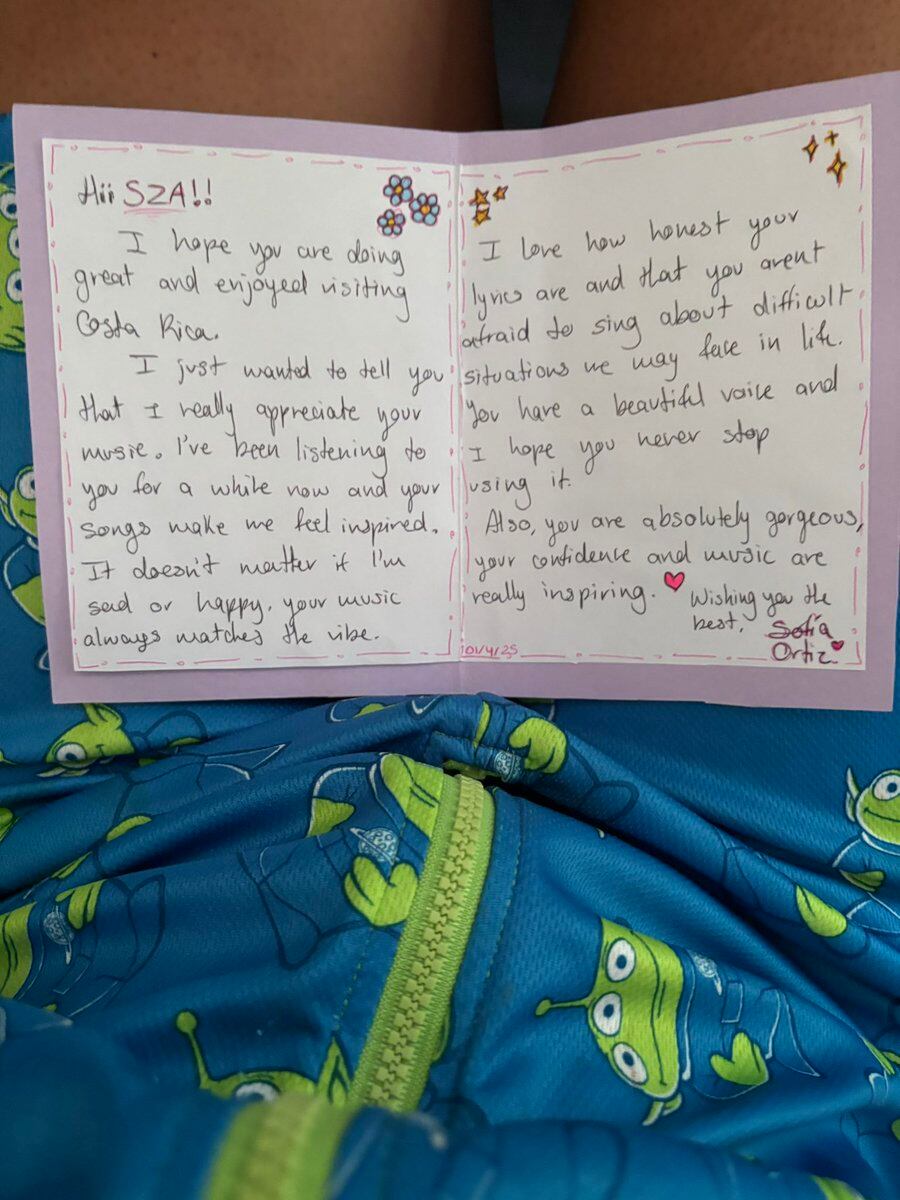 Hii SZA!!
I hope you are doing
great and enjoyed visiting
Costa Rica.
I just wanted to tell you
that I really appreciate your
music. I've been listening to
you for a while now and your
songs make me feel inspired.
It doesn't matter if I'm
sad or happy, your music
always matches the vibe.
I love how honest your
lyrics are and that you arent
afraid to sing about difficult
situations we may face in life.
You have a beautiful voice and
I hope you never stop
using it.
Also, you are absolutely gorgeous,
your confidence and music are
really inspiring.
Wishing you the
best,
Sofía
Ortiz
10/4/25